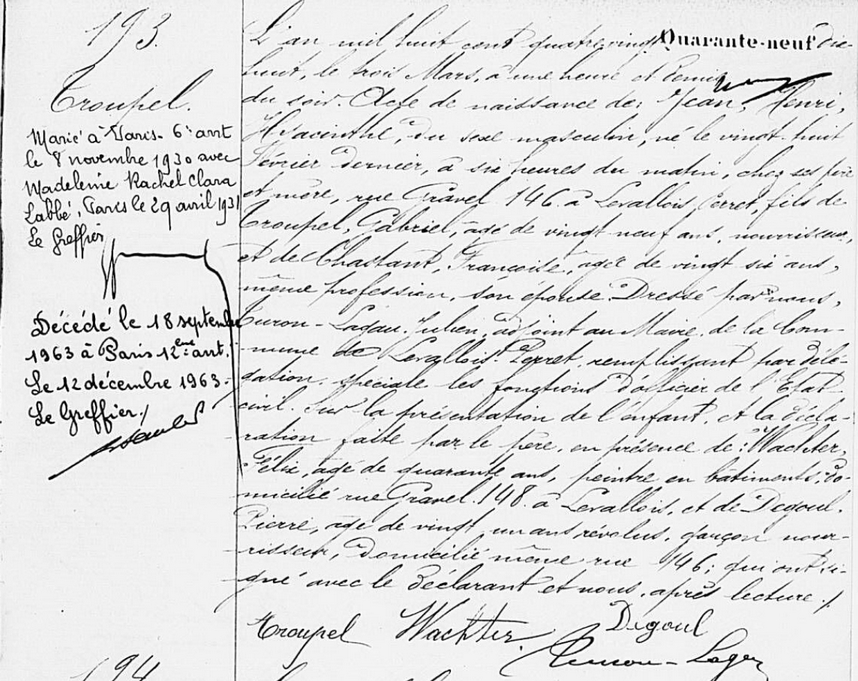 193.
Troupel.
Marié à Paris 6e arrt
le 8 novembre 1930 avec
Madeleine Rachel Clara
Labbé, Paris le 29 avril 1931
Le Greffier
Décédé le 18 septembre
1963 à Paris 12ème arrt.
Le 12 décembre 1963.
Le Greffier
L'an mil huit cent quatre vingt dix
Quarante-neuf
huit, le trois Mars, à une heure et demie
du soir. Acte de naissance de: Jean, Henri,
Hyacinthe, du sexe masculin, né le vingt huit
Février dernier, à six heures du matin, chez ses père
et mère, rue Gravel 146 à Levallois Perret, fils de
Troupel, Gabriel, âgé de vingt neuf ans, nourrisseur,
et de Chastant, Françoise, âgée de vingt six ans,
même profession, son épouse. Dressé par nous,
Julien, adjoint au Maire de la Com-
mune de Levallois Perret, remplissant par délé-
gation spéciale les fonctions d'officier de l'Etat
civil. Sur la présentation de l'enfant et la décla-
ration faite par le père, en présence de: Wachter,
Félix, âgé de quarante ans, peintre en bâtiments, do-
micilié rue Gravel 148 à Levallois, et de Degoul,
Pierre, âgé de vingt un ans révolus, garçon nour-
risseur, domicilié même rue 146; qui ont si-
gné avec le déclarant et nous, après lecture ./.
Troupel Wachter Degoul
194